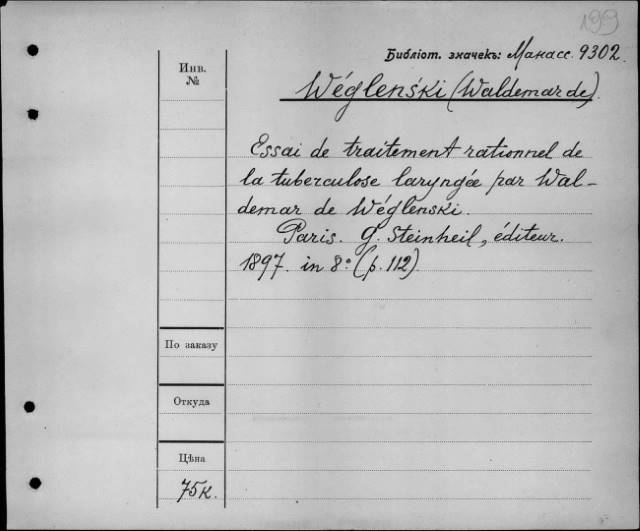 199
Библіот. значекъ: Манасс. 9302.
Инв.
№
Wéglenśki (Waldemar de).
Essai de traitement rationnel de
la tuberculose laryngée par Wal-
demar de Wéglenski.
Paris. G. Steinheil, éditeur.
1897. in 8º. (p. 112).
По заказу
Откуда
Цѣна
75 к.